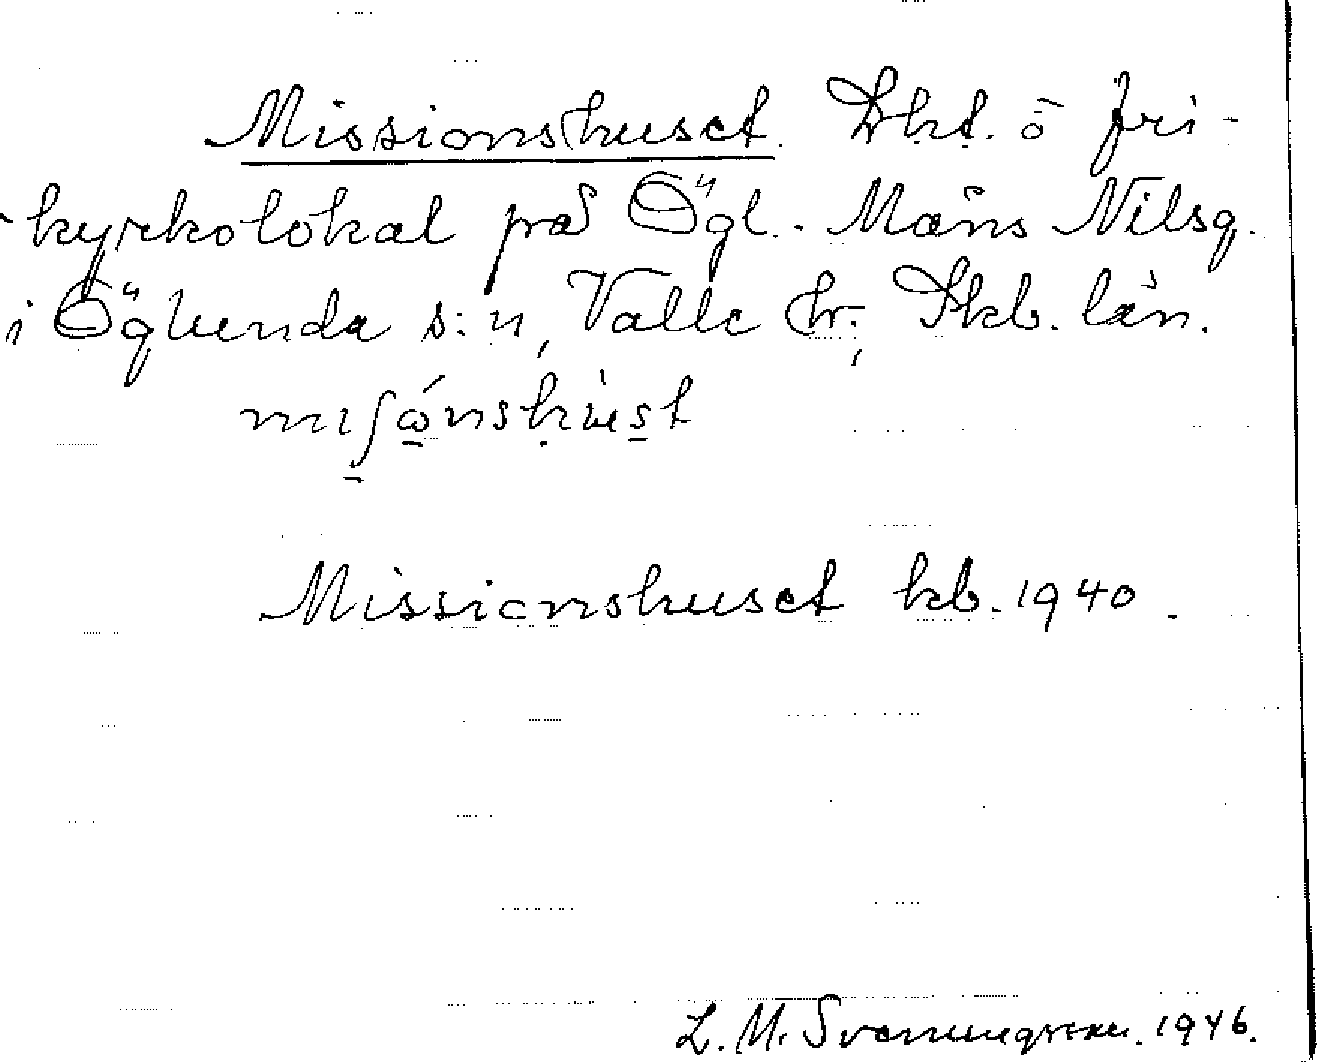 Missionshuset. Lht. o fri-
kyrkolokal på Ögl. Måns Nilsg.
i Öglunda s:n, Valle hr., Skb. län.
Missionshuset kb. 1940.
L. M. Svenungsson. 1946.